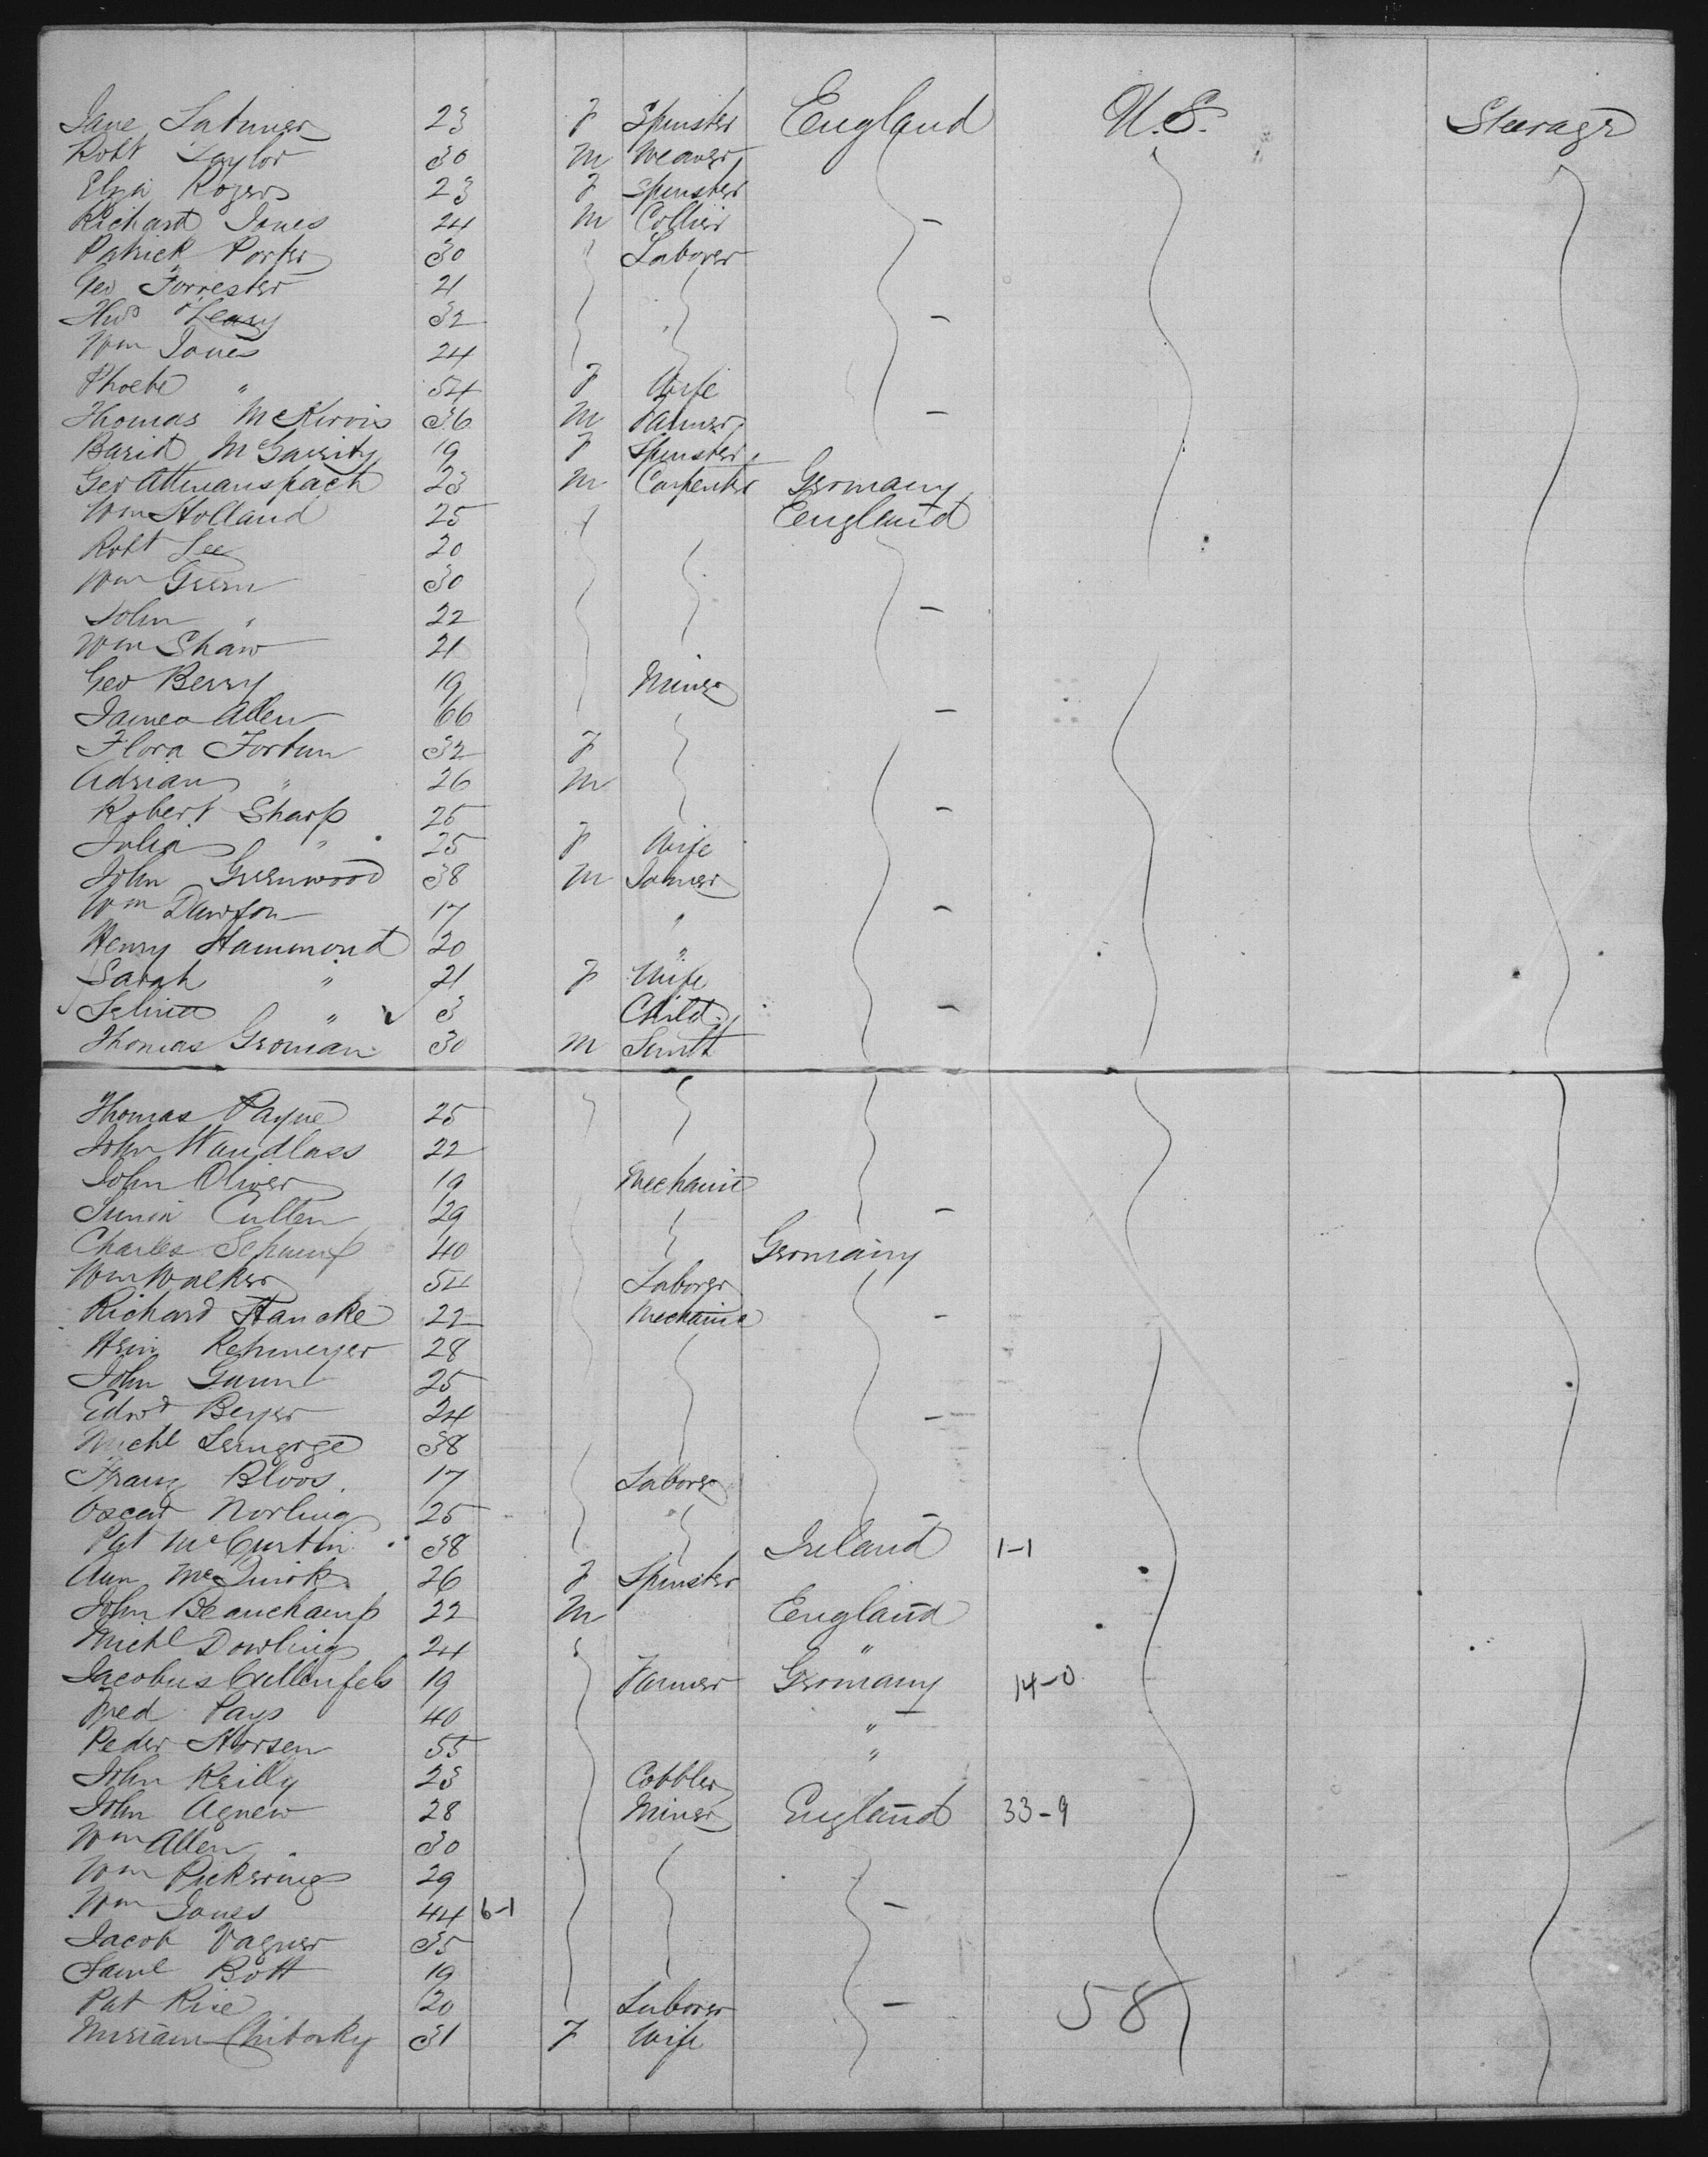 Jane Latimer 23 F Spinster England U.S. Steerage
Robt Taylor 30 M Weaver
Eliza Rogers 23 F Spinster
Richard Jones 24 M Collier –
Patrick Porter 30 Laborer
Geo Forrester 21
Leary 32 –
Wm Jones 24
Phoebe " 54 F Wife
Thomas 36 M Farmer –
McGarrity 19 F Spinster
Geo Attmanspach 23 M Carpenter Germany
Wm Holland 25 England
Robt Lee 20
Wm Green 30
John " 22 –
Wm Shaw 21
Geo Berry 19 Miner
James Allen 66 –
Flora Fortun 32 F
Adrian " 26 M
Robert Sharp 25 –
Julia " 25 F Wife
John Greenwood 38 M Joiner
Wm Dawson 17 " –
Henry Hammond 20 "
Sarah " 21 F Wife
" 3 Child –
Thomas Groman 30 M Smith
Thomas Payne 25
John Wandlass 22
John Oliver 19 Mechanic
Cullen 29 –
Charles 40 Germany
Wm Walker 54 Laborer
Richard Hancke 22 Mechanic –
Hein Rehmeyer 28
John 25
Edwd Beyer 24 –
Michl 38
Franz Bloos 17 Laborer
Oscar Norling 25 –
Pat McCurtin 38 Ireland 1-1
Ann McQuirk 26 F Spinster
John Beauchamp 22 M England
Michl Dowling 24 "
Jacobus 19 Farmer Germany 14-0
Fred Pays 40 " –
Peder 55 "
John Reilly 23 Cobbler
John Agnew 28 Miner England 33-9
Wm Allen 30
Wm Pickering 29
Wm Jones 44 6-1 –
Jacob Vagner 35
Saml Bott 19
Pat Rice 20 Laborer – 58
Miriam Chitosky 31 F Wife